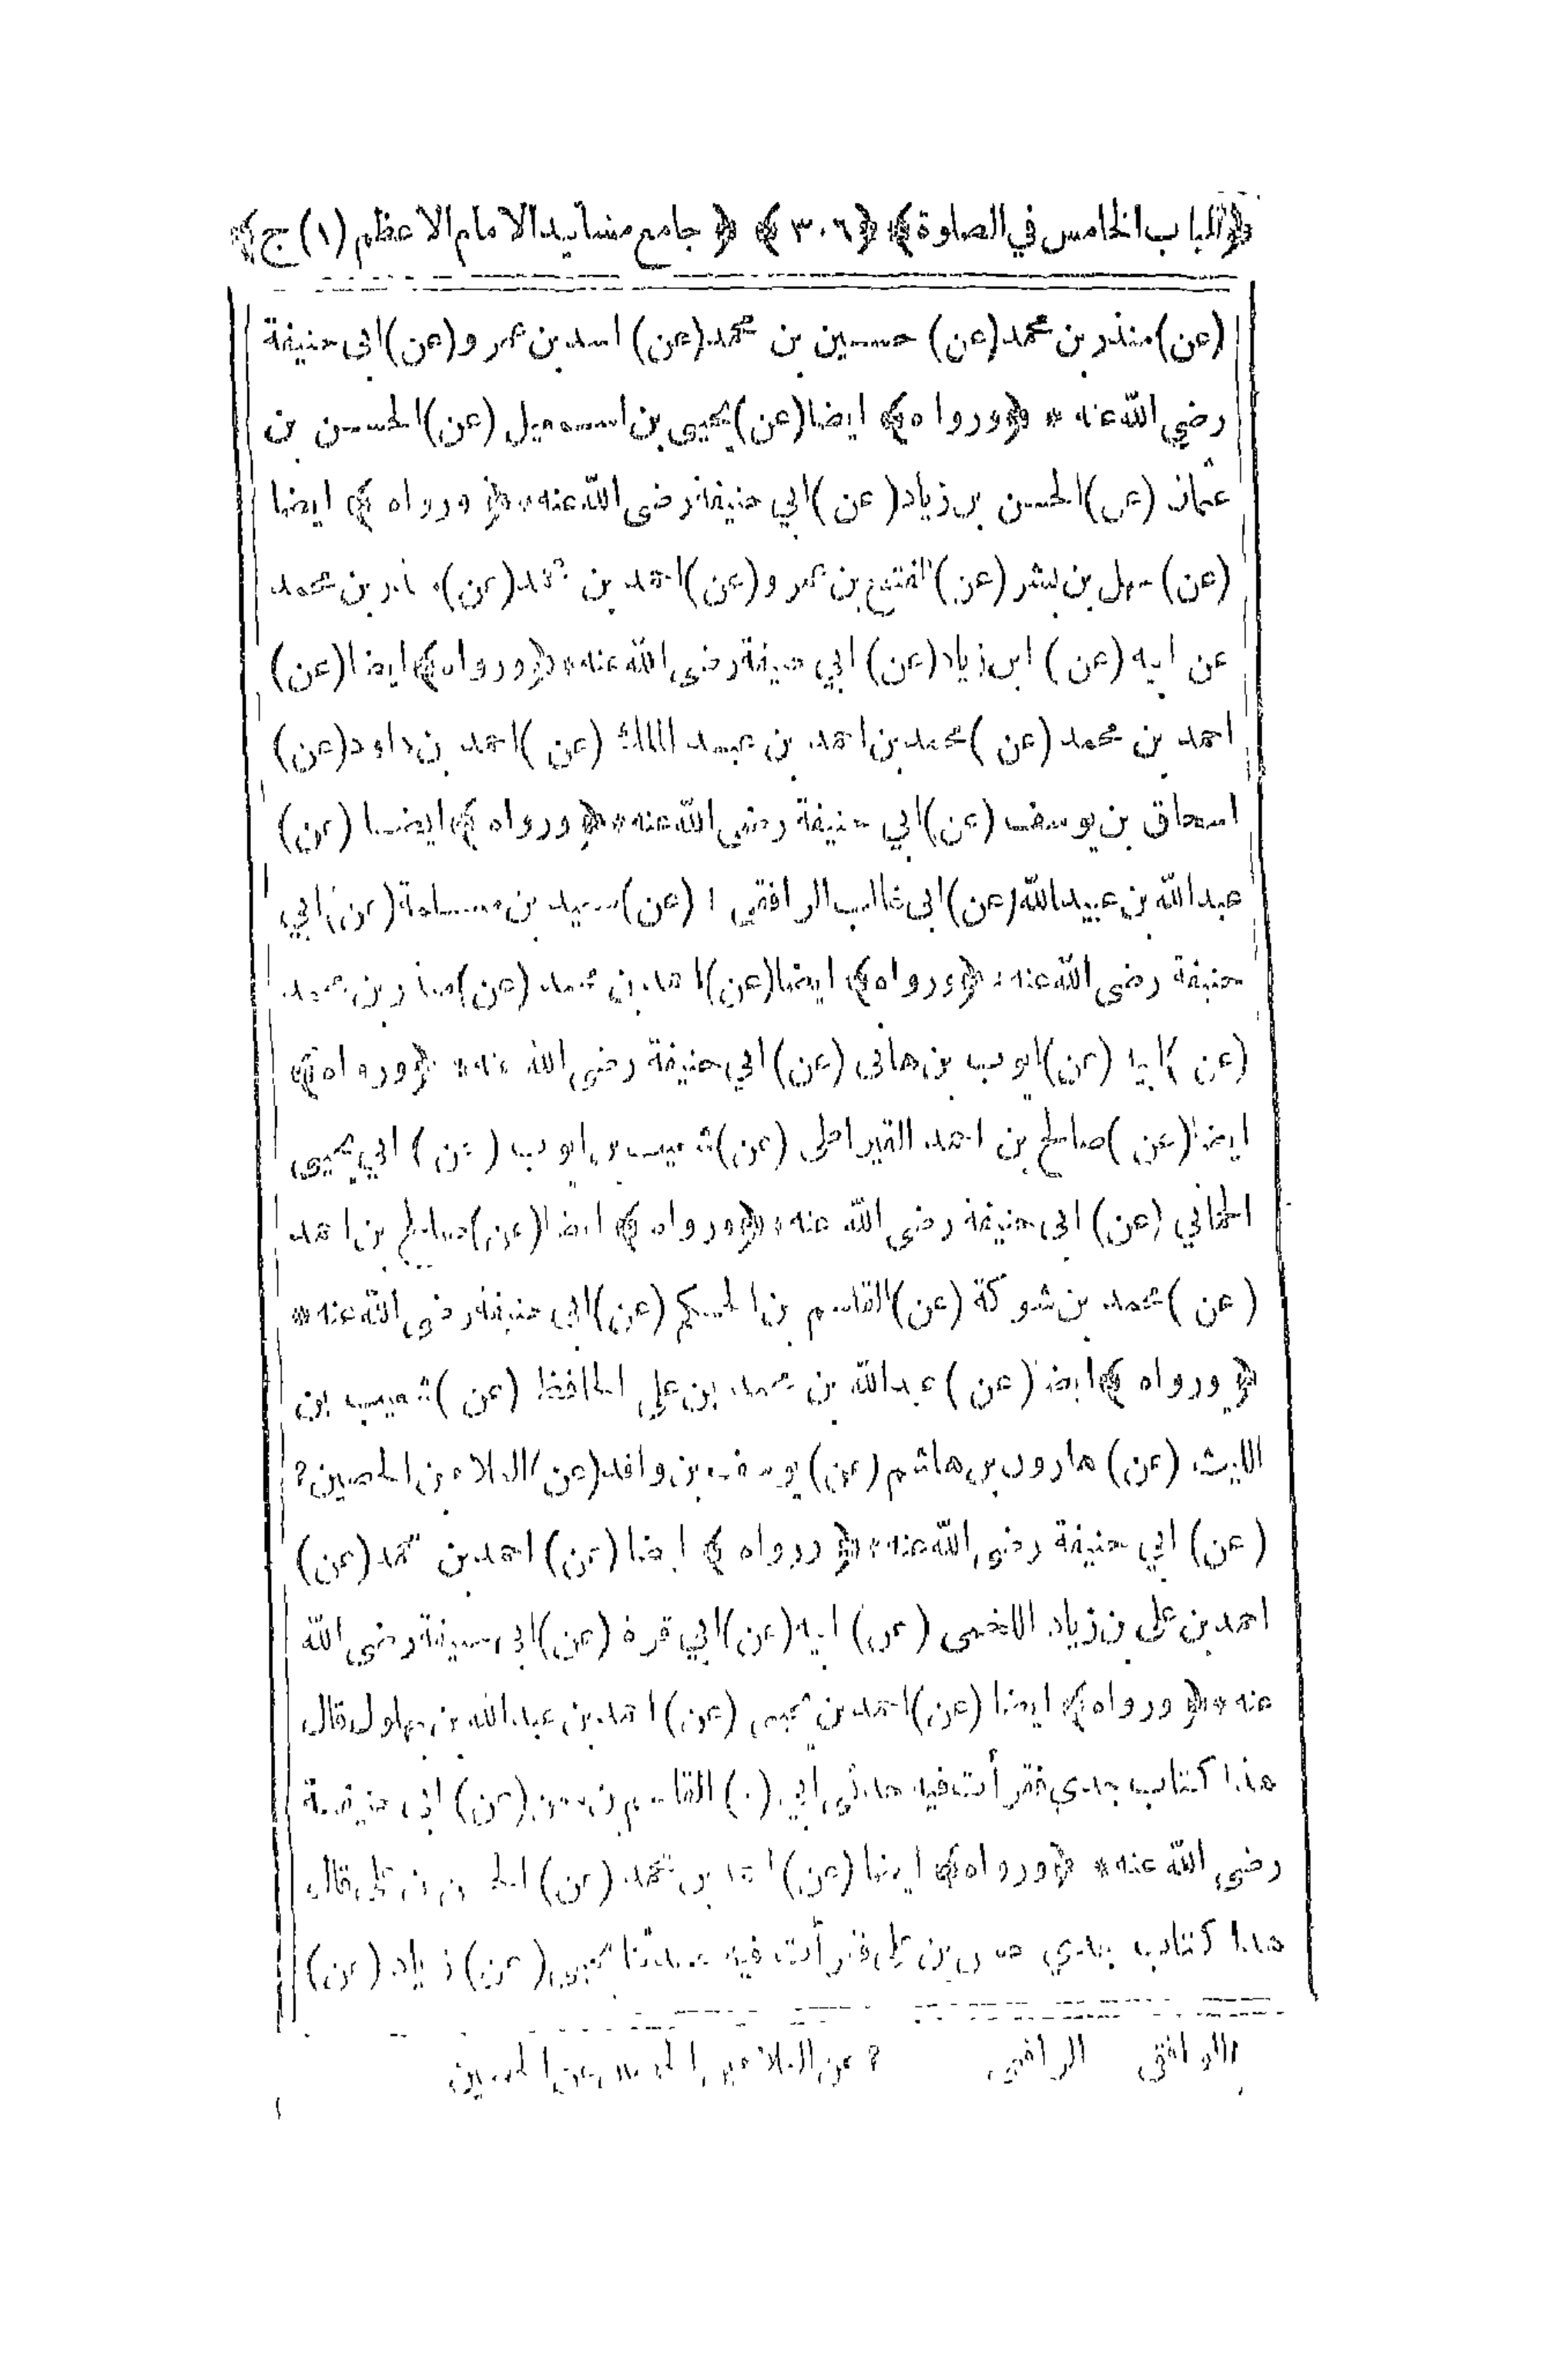 ﴿الباب الخامس في الصلوة﴾ ﴿٣٠٦﴾ ﴿جامع مسانيد الامام الاعظم (١) ج﴾
(عن) منذر بن محمد (عن) حسين بن محمد (عن) اسد بن عمرو (عن) ابى حنيفة
رضي الله عنه * ﴿ورواه﴾ ايضا (عن) يحيى بن اسمعيل (عن) الحسن بن
عثمان (عن) الحسن بن زياد (عن) ابي حنيفة رضى الله عنه * ﴿ورواه﴾ ايضا
(عن) سهل بن بشر (عن) الفتح بن عمرو (عن) احمد بن محمد (عن) منذر بن محمد
عن ابيه (عن) ابن زياد (عن) ابي حنيفة رضى الله عنه * ﴿ورواه﴾ ايضا (عن)
احمد بن محمد (عن) محمد بن احمد بن عبد الملك (عن) احمد بن داود (عن)
اسحاق بن يوسف (عن) ابي حنيفة رضى الله عنه * ﴿ورواه﴾ ايضا (عن)
عبد الله بن عبيد الله (عن) ابى غالب الرافقى ١ (عن) سعيد بن مسلمة (عن) ابي
حنيفة رضى الله عنه * ﴿ورواه﴾ ايضا (عن) احمد بن محمد (عن) منذر بن محمد
(عن) ابيه (عن) ايوب بن هانى (عن) ابي حنيفة رضى الله عنه * ﴿ورواه﴾
ايضا (عن) صالح بن احمد القيراطى (عن) شعيب بن ايوب (عن) ابي يحيى
الحماني (عن) ابى حنيفة رضى الله عنه * ﴿ورواه﴾ ايضا (عن) صالح بن احمد
(عن) محمد بن شوكة (عن) القاسم بن الحكم (عن) ابى حنيفة رضى الله عنه *
﴿ورواه﴾ ايضا (عن) عبد الله بن محمد بن علي الحافظ (عن) شعيب بن
الليث (عن) هارون بن هاشم (عن) يوسف بن واقد (عن) العلاء بن الحصين ٢
(عن) ابي حنيفة رضى الله عنه * ﴿ورواه﴾ ايضا (عن) احمد بن محمد (عن)
احمد بن على بن زياد (عن) ابيه (عن) ابي قرة (عن) ابى حنيفة رضى الله
عنه * ﴿ورواه﴾ ايضا (عن) احمد بن محمد (عن) احمد بن عبد الله بن بهلول قال
هذا كتاب جدي فقرأت فيه حدثنى أبي (عن) القاسم بن معن (عن) ابى حنيفة
رضى الله عنه * ﴿ورواه﴾ ايضا (عن) احمد بن محمد (عن) بن على قال
هذا كتاب جدي بن على فقرأت فيه حدثنا يحيى (عن) زياد (عن)
١ الوافقى الرافقى ٢ عن العلاء عن الحصين